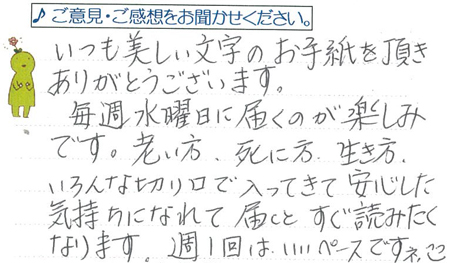 ♪ご意見・ご感想をお聞かせください。
いつも美しい文字のお手紙を頂き
ありがとうございます。
毎週水曜日に届くのが楽しみ
です。老い方、死に方、生き方、
いろんな切り口で入ってきて安心した
気持ちになれて届くとすぐ読みたく
なります。週1回は、いいペースですネ、ここ